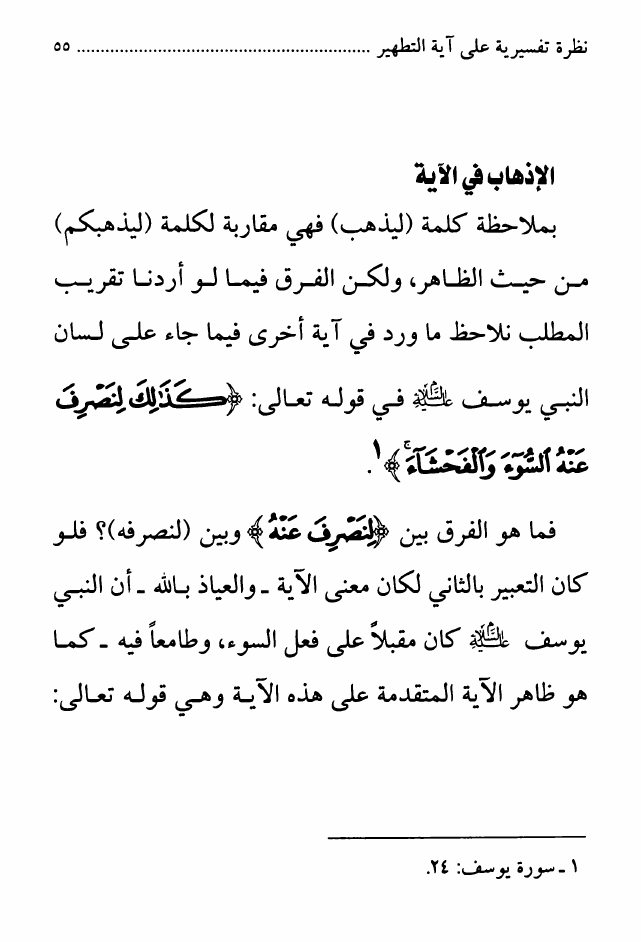 نظرة تفسيرية على آية التطهير ............................................................... ٥٥
الإذهاب في الآية
بملاحظة كلمة (ليذهب) فهي مقاربة لكلمة (ليذهبكم)
من حيث الظاهر، ولكن الفرق فيما لو أردنا تقريب
المطلب نلاحظ ما ورد في آية أخرى فيما جاء على لسان
النبي يوسف عليه السلام في قوله تعالى: ﴿كَذَٰلِكَ لِنَصْرِفَ
عَنْهُ ٱلسُّوٓءَ وَٱلْفَحْشَآءَ ۚ﴾١.
فما هو الفرق بين ﴿لِنَصْرِفَ عَنْهُ﴾ وبين (لنصرفه)؟ فلو
كان التعبير بالثاني لكان معنى الآية ـ والعياذ بالله ـ أن النبي
يوسف عليه السلام كان مقبلاً على فعل السوء، وطامعاً فيه ـ كما
هو ظاهر الآية المتقدمة على هذه الآية وهي قوله تعالى:
١ ـ سورة يوسف: ٢٤.